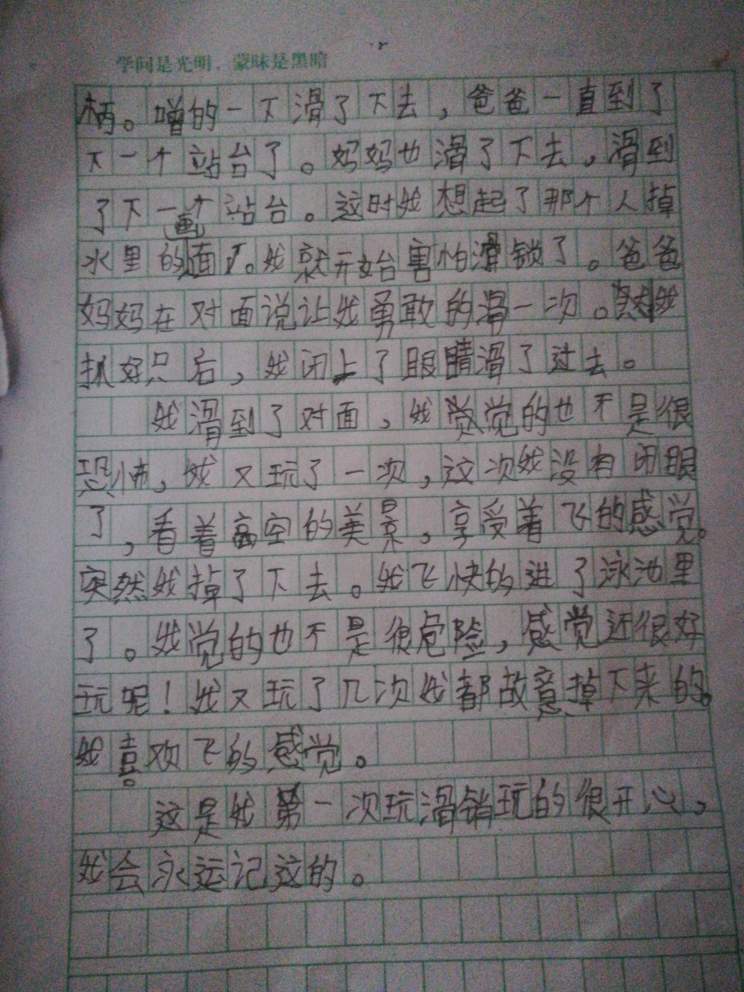 学问是光明，蒙昧是黑暗
柄。噌的一下滑了下去，爸爸一直到了
下一个站台了。妈妈也滑了下去，滑到
了下一个站台。这时我想起了那个人掉
水里的画面了。我就开始害怕滑锁了。爸爸
妈妈在对面说让我勇敢的滑一次。我
抓好只后，我闭上了眼睛滑了过去。
我滑到了对面，我觉觉的也不是很
恐怖，我又玩了一次，这次我没有闭眼
了，看着高空的美景，享受着飞的感觉。
突然我掉了下去。我飞快的进了泳池里
了。我觉的也不是很危险，感觉还很好
玩呢！我又玩了几次我都故意掉下来的。
我喜欢飞的感觉。
这是我第一次玩滑销玩的很开心，
我会永远记这的。